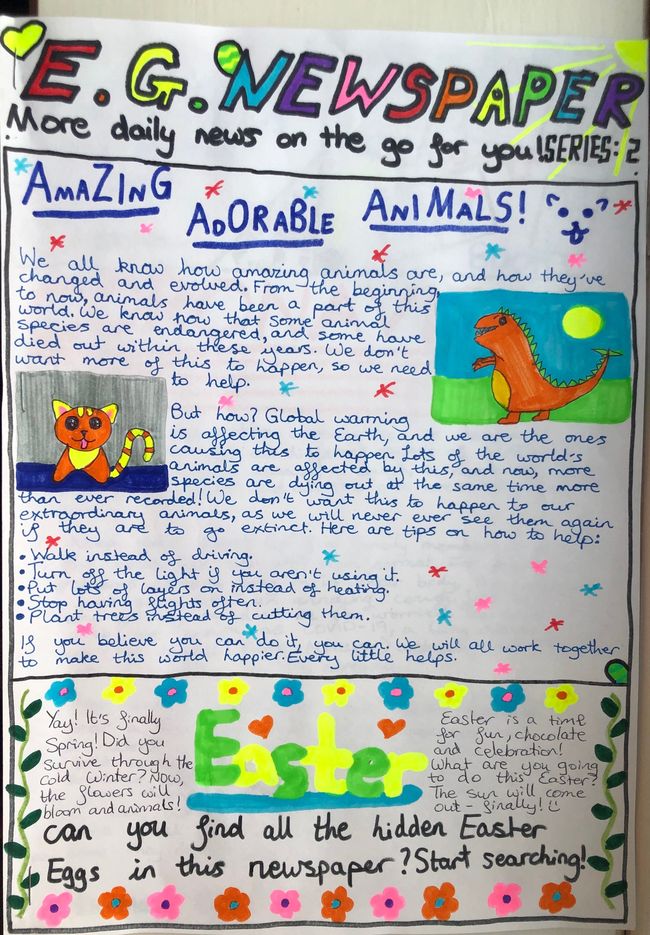 E.G. NEWSPAPER
More daily news on the go for you! SERIES: 2
AMAZING ADORABLE ANIMALS!
We all know how amazing animals are, and how they've
changed and evolved. From the beginning,
to now, animals have been a part of this
world. We know now that some animal
species are endangered, and some have
died out within these years. We don't
want more of this to happen, so we need
to help.
But how? Global warming
is affecting the Earth, and we are the ones
causing this to happen. Lots of the world's
animals are affected by this, and now, more
species are dying out at the same time more
than ever recorded! We don't want this to happen to our
extraordinary animals, as we will never ever see them again
if they are to go extinct. Here are tips on how to help:
• Walk instead of driving.
• Turn off the light if you aren't using it.
• Put lots of layers on instead of heating.
• Stop having flights often.
• Plant trees instead of cutting them.
If you believe you can do it, you can. We will all work together
to make this world happier. Every little helps.
Yay! It's finally
Spring! Did you
survive through the
cold Winter? Now,
the flowers will
bloom and animals!
Easter
Easter is a time
for fun, chocolate
and celebration!
What are you going
to do this Easter?
The sun will come
out - finally!
can you find all the hidden Easter
Eggs in this newspaper? Start searching!